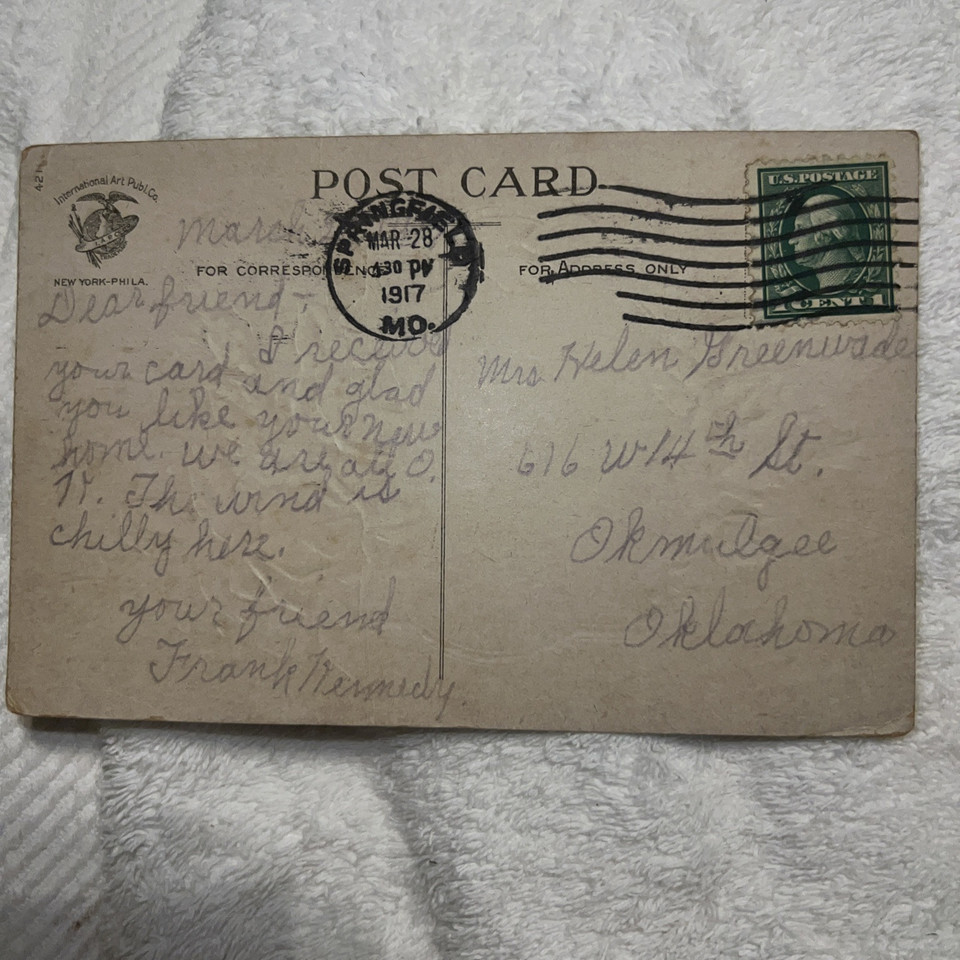 International Art Publ. Co.
NEW YORK-PHILA.
POST CARD
FOR CORRESPONDENCE
FOR ADDRESS ONLY
SPRINGFIELD
MAR 28
430 PM
1917
MO.
U.S. POSTAGE
1 CENT 1
March
Dear friend -
I received
your card and glad
you like your new
home. we are all O.
K. The wind is
chilly here.
your friend
Frank Kennedy
Mrs Helen Greenwade
616 W 14th St.
Okmulgee
Oklahoma